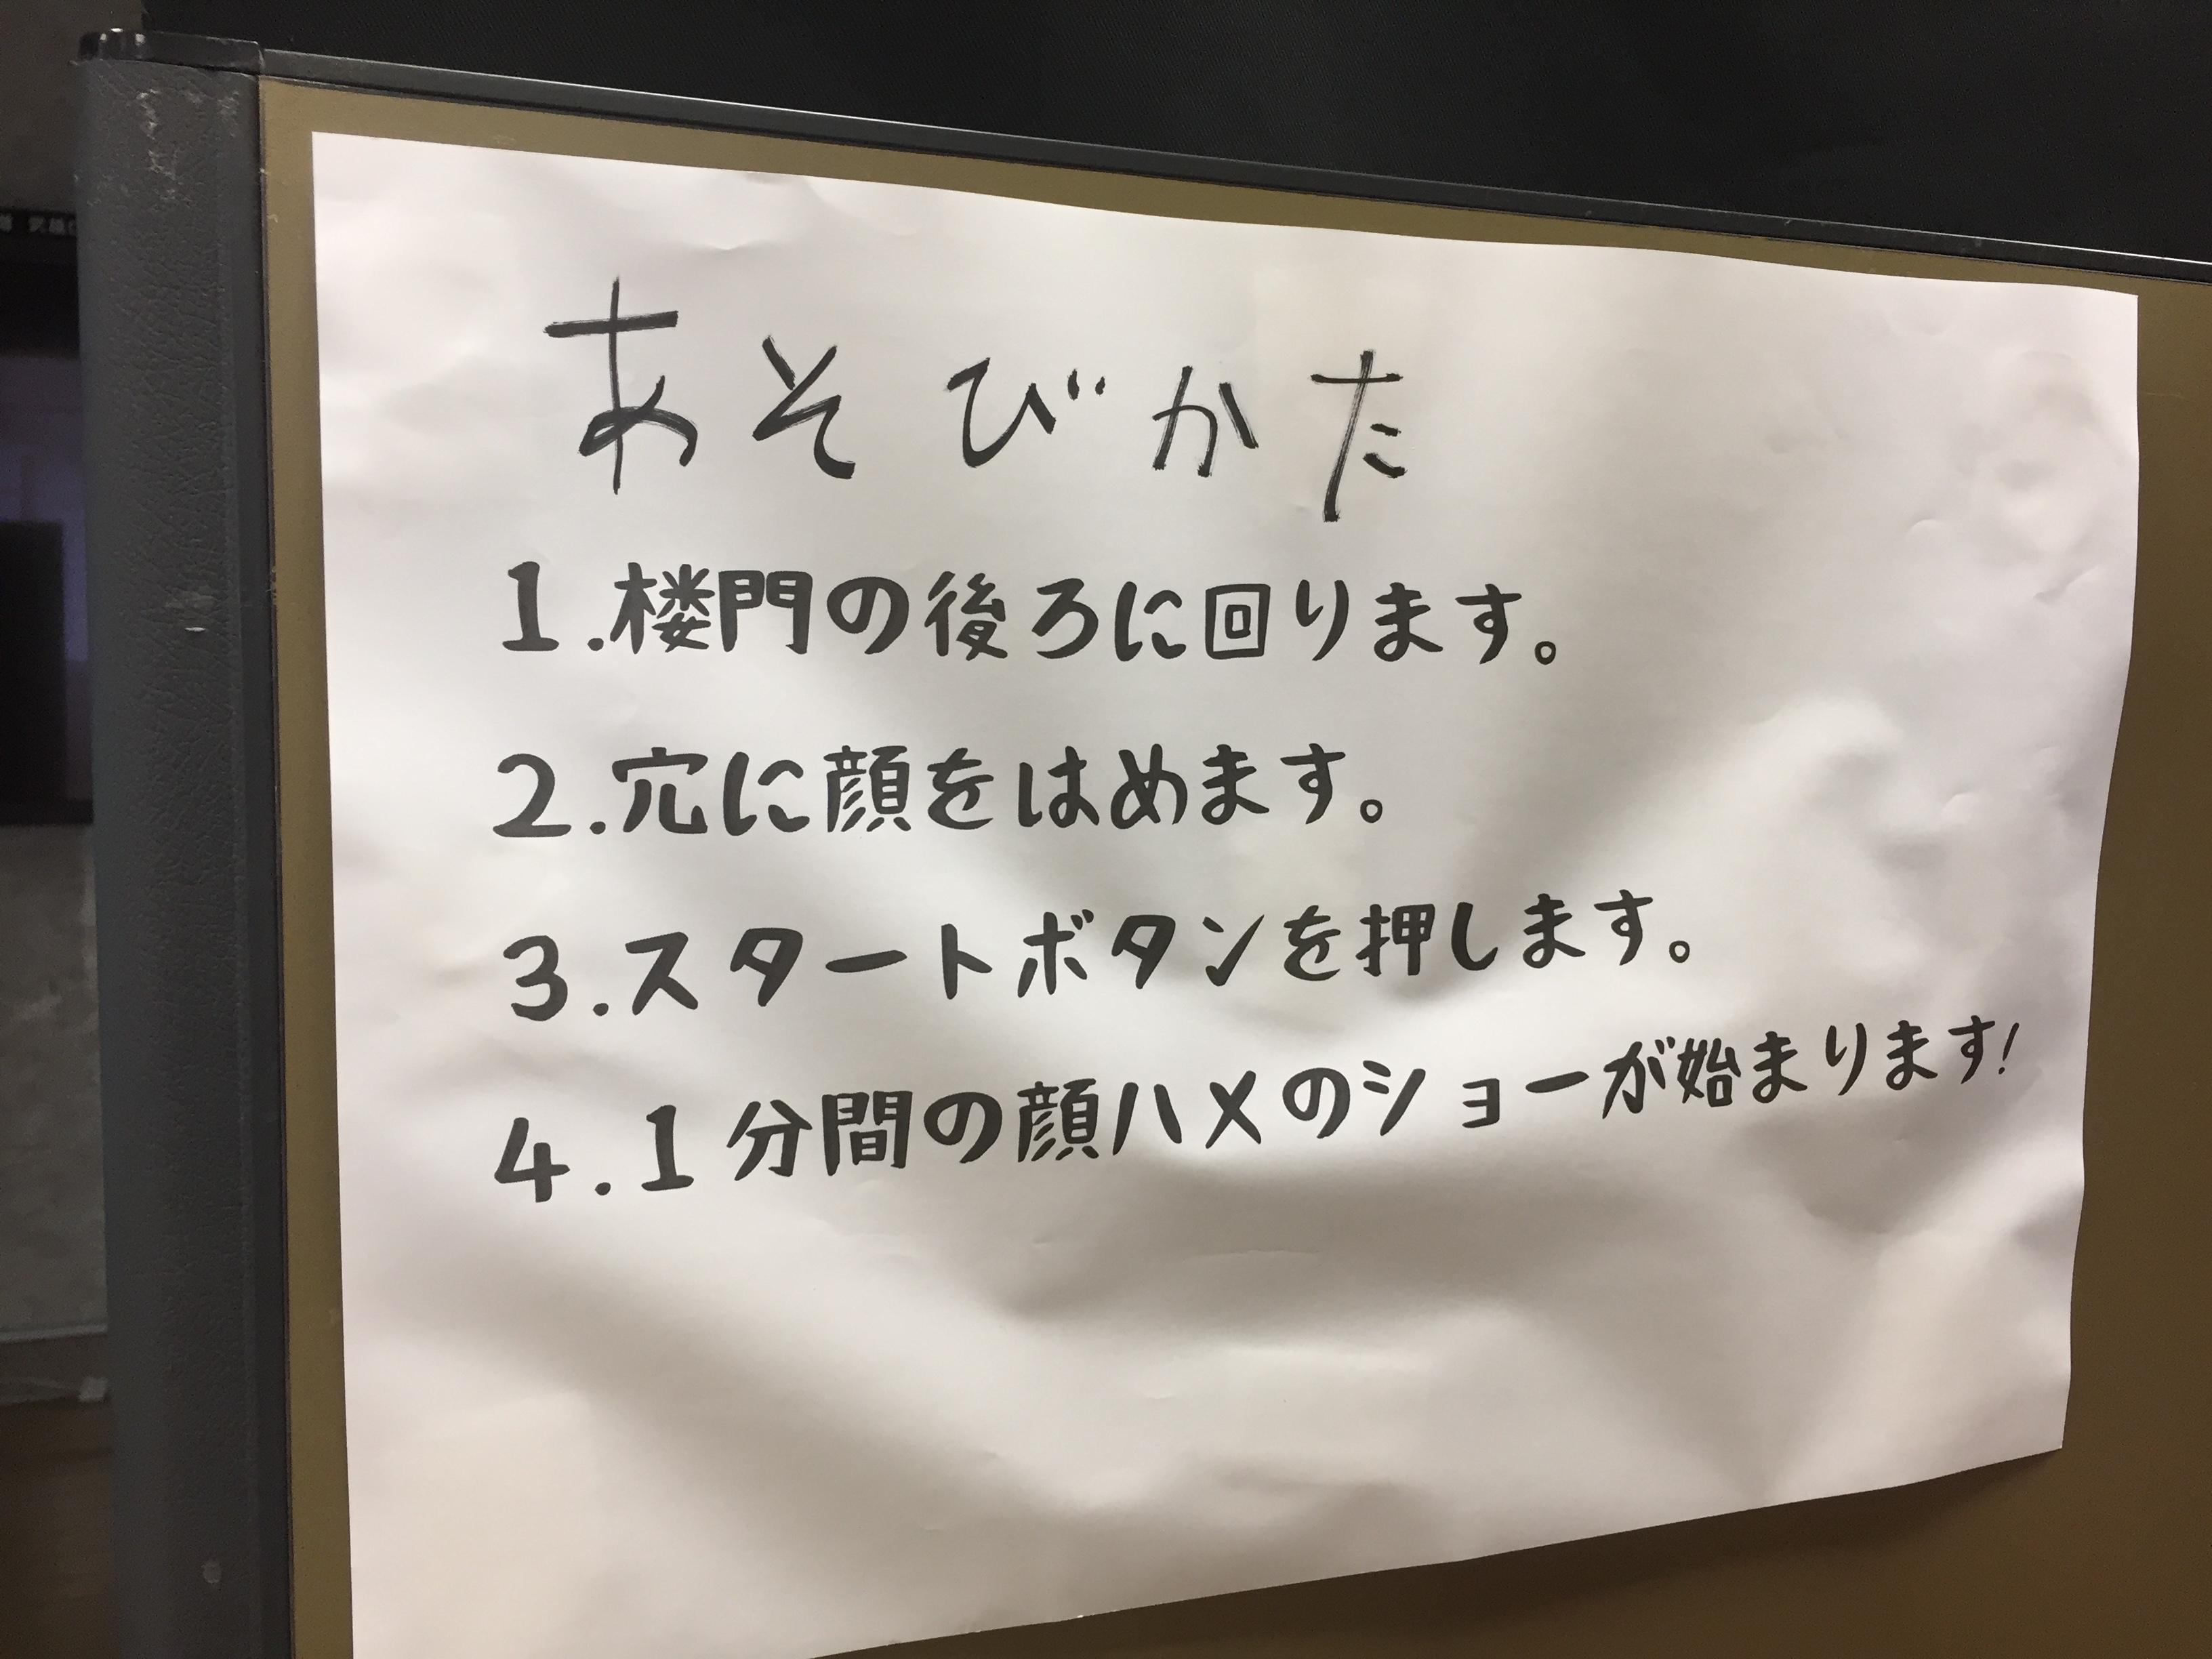 あそびかた
1.楼門の後ろに回ります。
2.穴に顔をはめます。
3.スタートボタンを押します。
4.1分間の顔ハメのショーが始まります!